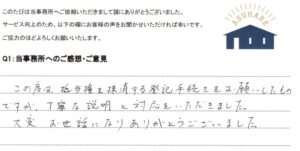 このたびは当事務所へご依頼いただきまして誠にありがとうございました。
サービス向上のため、以下の欄にお客様の声をお聞かせいただければ幸いです。
ご協力のほどよろしくお願いいたします。
ASUHARE
Q1:当事務所へのご感想・ご意見
この度は、抵当権を抹消する登記手続きをお願いしたもの
ですが、丁寧な説明と対応をいただきました。
大変お世話になりありがとうございました。